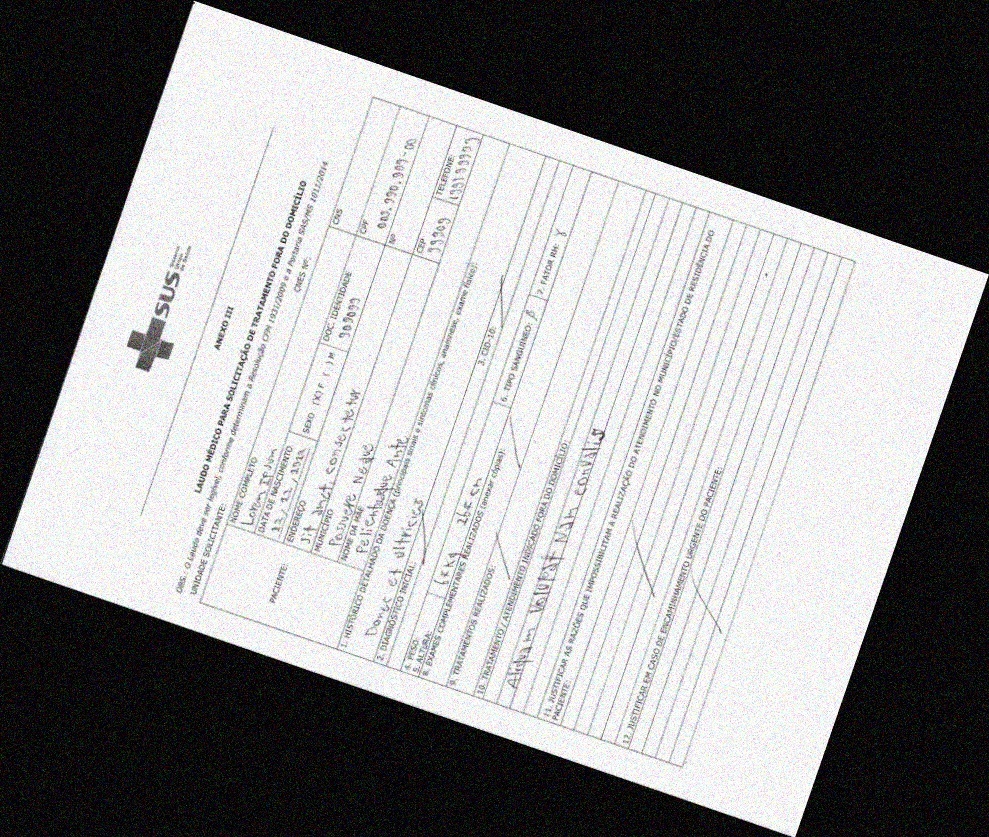 SUS
ANEXO III
LAUDO MÉDICO PARA SOLICITAÇÃO DE TRATAMENTO FORA DO DOMICÍLIO
OBS: O Laudo deve ser legível, conforme determinam a Resolução CFM 1931/2009 e a Portaria SAS/MS 1011/2014
UNIDADE SOLICITANTE: CNES Nº:
PACIENTE:
NOME COMPLETO CNS
Lorem Ipsum
DATA DE NASCIMENTO SEXO (X)F ( )M DOC. IDENTIDADE CPF
909099
ENDEREÇO Nº
Sit amet, consectetur
MUNICÍPIO CEP TELEFONE:
Posuere Neque 99909
NOME DA MÃE
Pellentesque Ante
1. HISTÓRICO DETALHADO DA DOENÇA (principais sinais e sintomas clínicos, anamnese, exame físico):
Donec et ultricies
2. DIAGNÓSTICO INICIAL: 3. CID-10:
4. PESO:
5. ALTURA: 6. TIPO SANGUINEO: 7. FATOR RH:
8. EXAMES COMPLEMENTARES REALIZADOS (anexar cópias):
9. TRATAMENTOS REALIZADOS:
10. TRATAMENTO / ATENDIMENTO INDICADO FORA DO DOMICÍLIO:
Aliquam Volutpat Nan convalis
11. JUSTIFICAR AS RAZÕES QUE IMPOSSIBILITAM A REALIZAÇÃO DO ATENDIMENTO NO MUNICÍPIO/ESTADO DE RESIDÊNCIA DO
PACIENTE:
12. JUSTIFICAR EM CASO DE ENCAMINHAMENTO URGENTE DO PACIENTE: